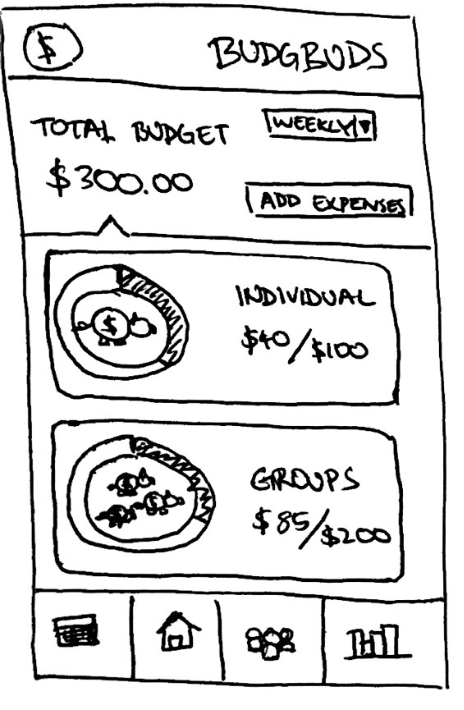 $ BUDGBUDS
TOTAL BUDGET WEEKLY
$300.00
ADD EXPENSES
$
INDIVIDUAL
$40/$100
GROUPS
$85/$200